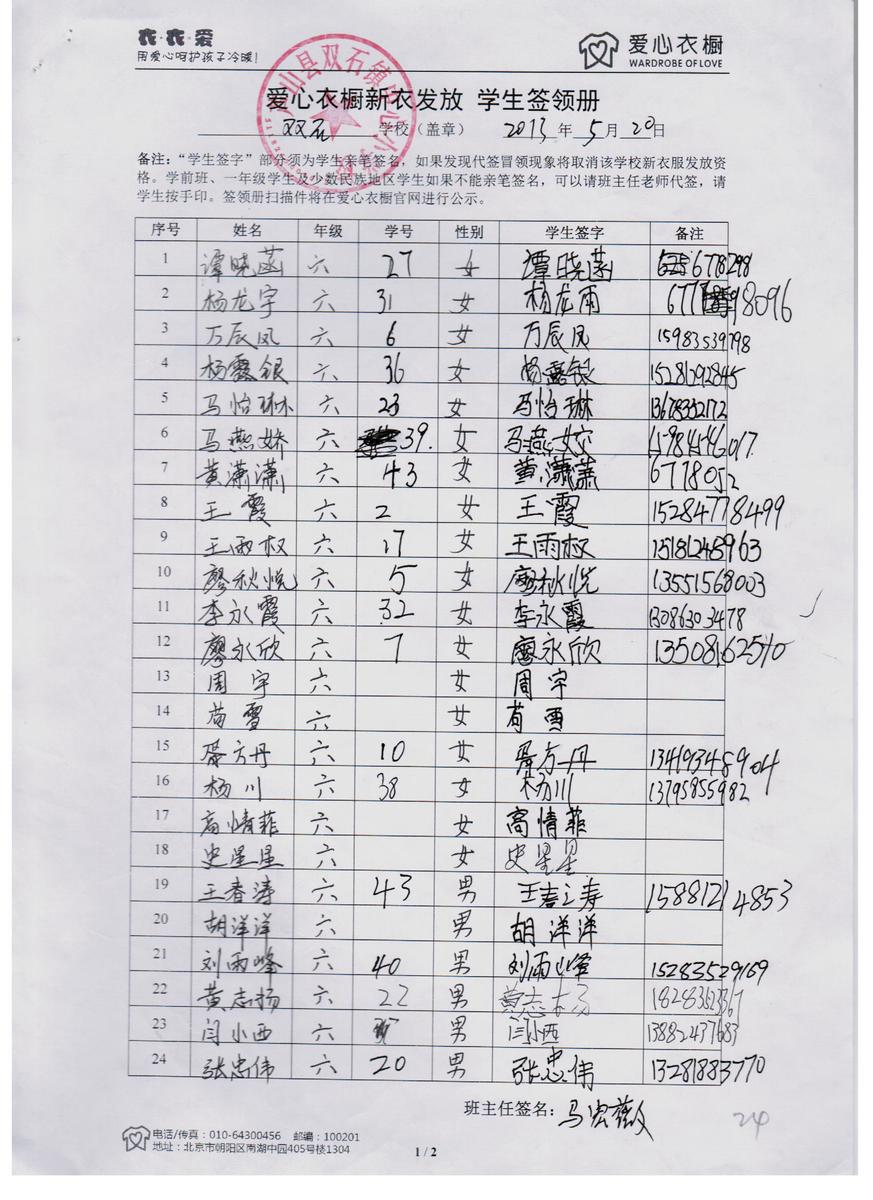 衣·衣·爱
用爱心呵护孩子冷暖!
爱心衣橱
WARDROBE OF LOVE
爱心衣橱新衣发放 学生签领册
双石 学校（盖章） 2013 年 5 月 20 日
备注：“学生签字”部分须为学生亲笔签名，如果发现代签冒领现象将取消该学校新衣服发放资
格。学前班、一年级学生及少数民族地区学生如果不能亲笔签名，可以请班主任老师代签，请
学生按手印。签领册扫描件将在爱心衣橱官网进行公示。
序号 姓名 年级 学号 性别 学生签字 备注
1 谭晓菡 六 27 女 谭晓菡 6778298
2 杨龙宇 六 31 女 杨龙雨
3 万辰凤 六 6 女 万辰凤 15983539798
4 杨霞银 六 36 女 杨霞银 15281292845
5 马怡琳 六 23 女 马怡琳 13678352172
6 马燕娇 六 39. 女 马燕 
7 黄潇潇 六 43 女 黄潇潇 6778052
8 王霞 六 2 女 王霞 15284778499
9 王雨权 六 17 女 王雨权 15181245963
10 廖秋悦 六 5 女 廖秋悦 13551568003
11 李永霞 六 32 女 李永霞 13086303478
12 廖永欣 六 7 女 廖永欣 13508162510
13 周宇 六 女 周宇
14 苟雪 六 女 苟雪
15 方丹 六 10 女 方丹 13419348904
16 杨川 六 38 女 杨川 13795855982
17 高情菲 六 女 高情菲
18 史星星 六 女 史星星
19 王春涛 六 43 男 王春涛 15881214853
20 胡洋洋 六 男 胡洋洋
21 刘雨峰 六 40 男 刘雨峰 15283529169
22 黄志扬 六 22 男 黄志扬
23 闫小西 六 男 闫小西 13882437683
24 张忠伟 六 20 男 张忠伟 13281883770
班主任签名：马
24
电话/传真：010-64300456 邮编：100201
地址：北京市朝阳区南湖中园405号楼1304
1 / 2